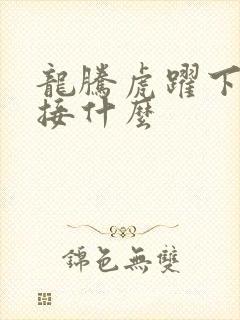 龍騰虎躍下
接什麼
錦色無雙